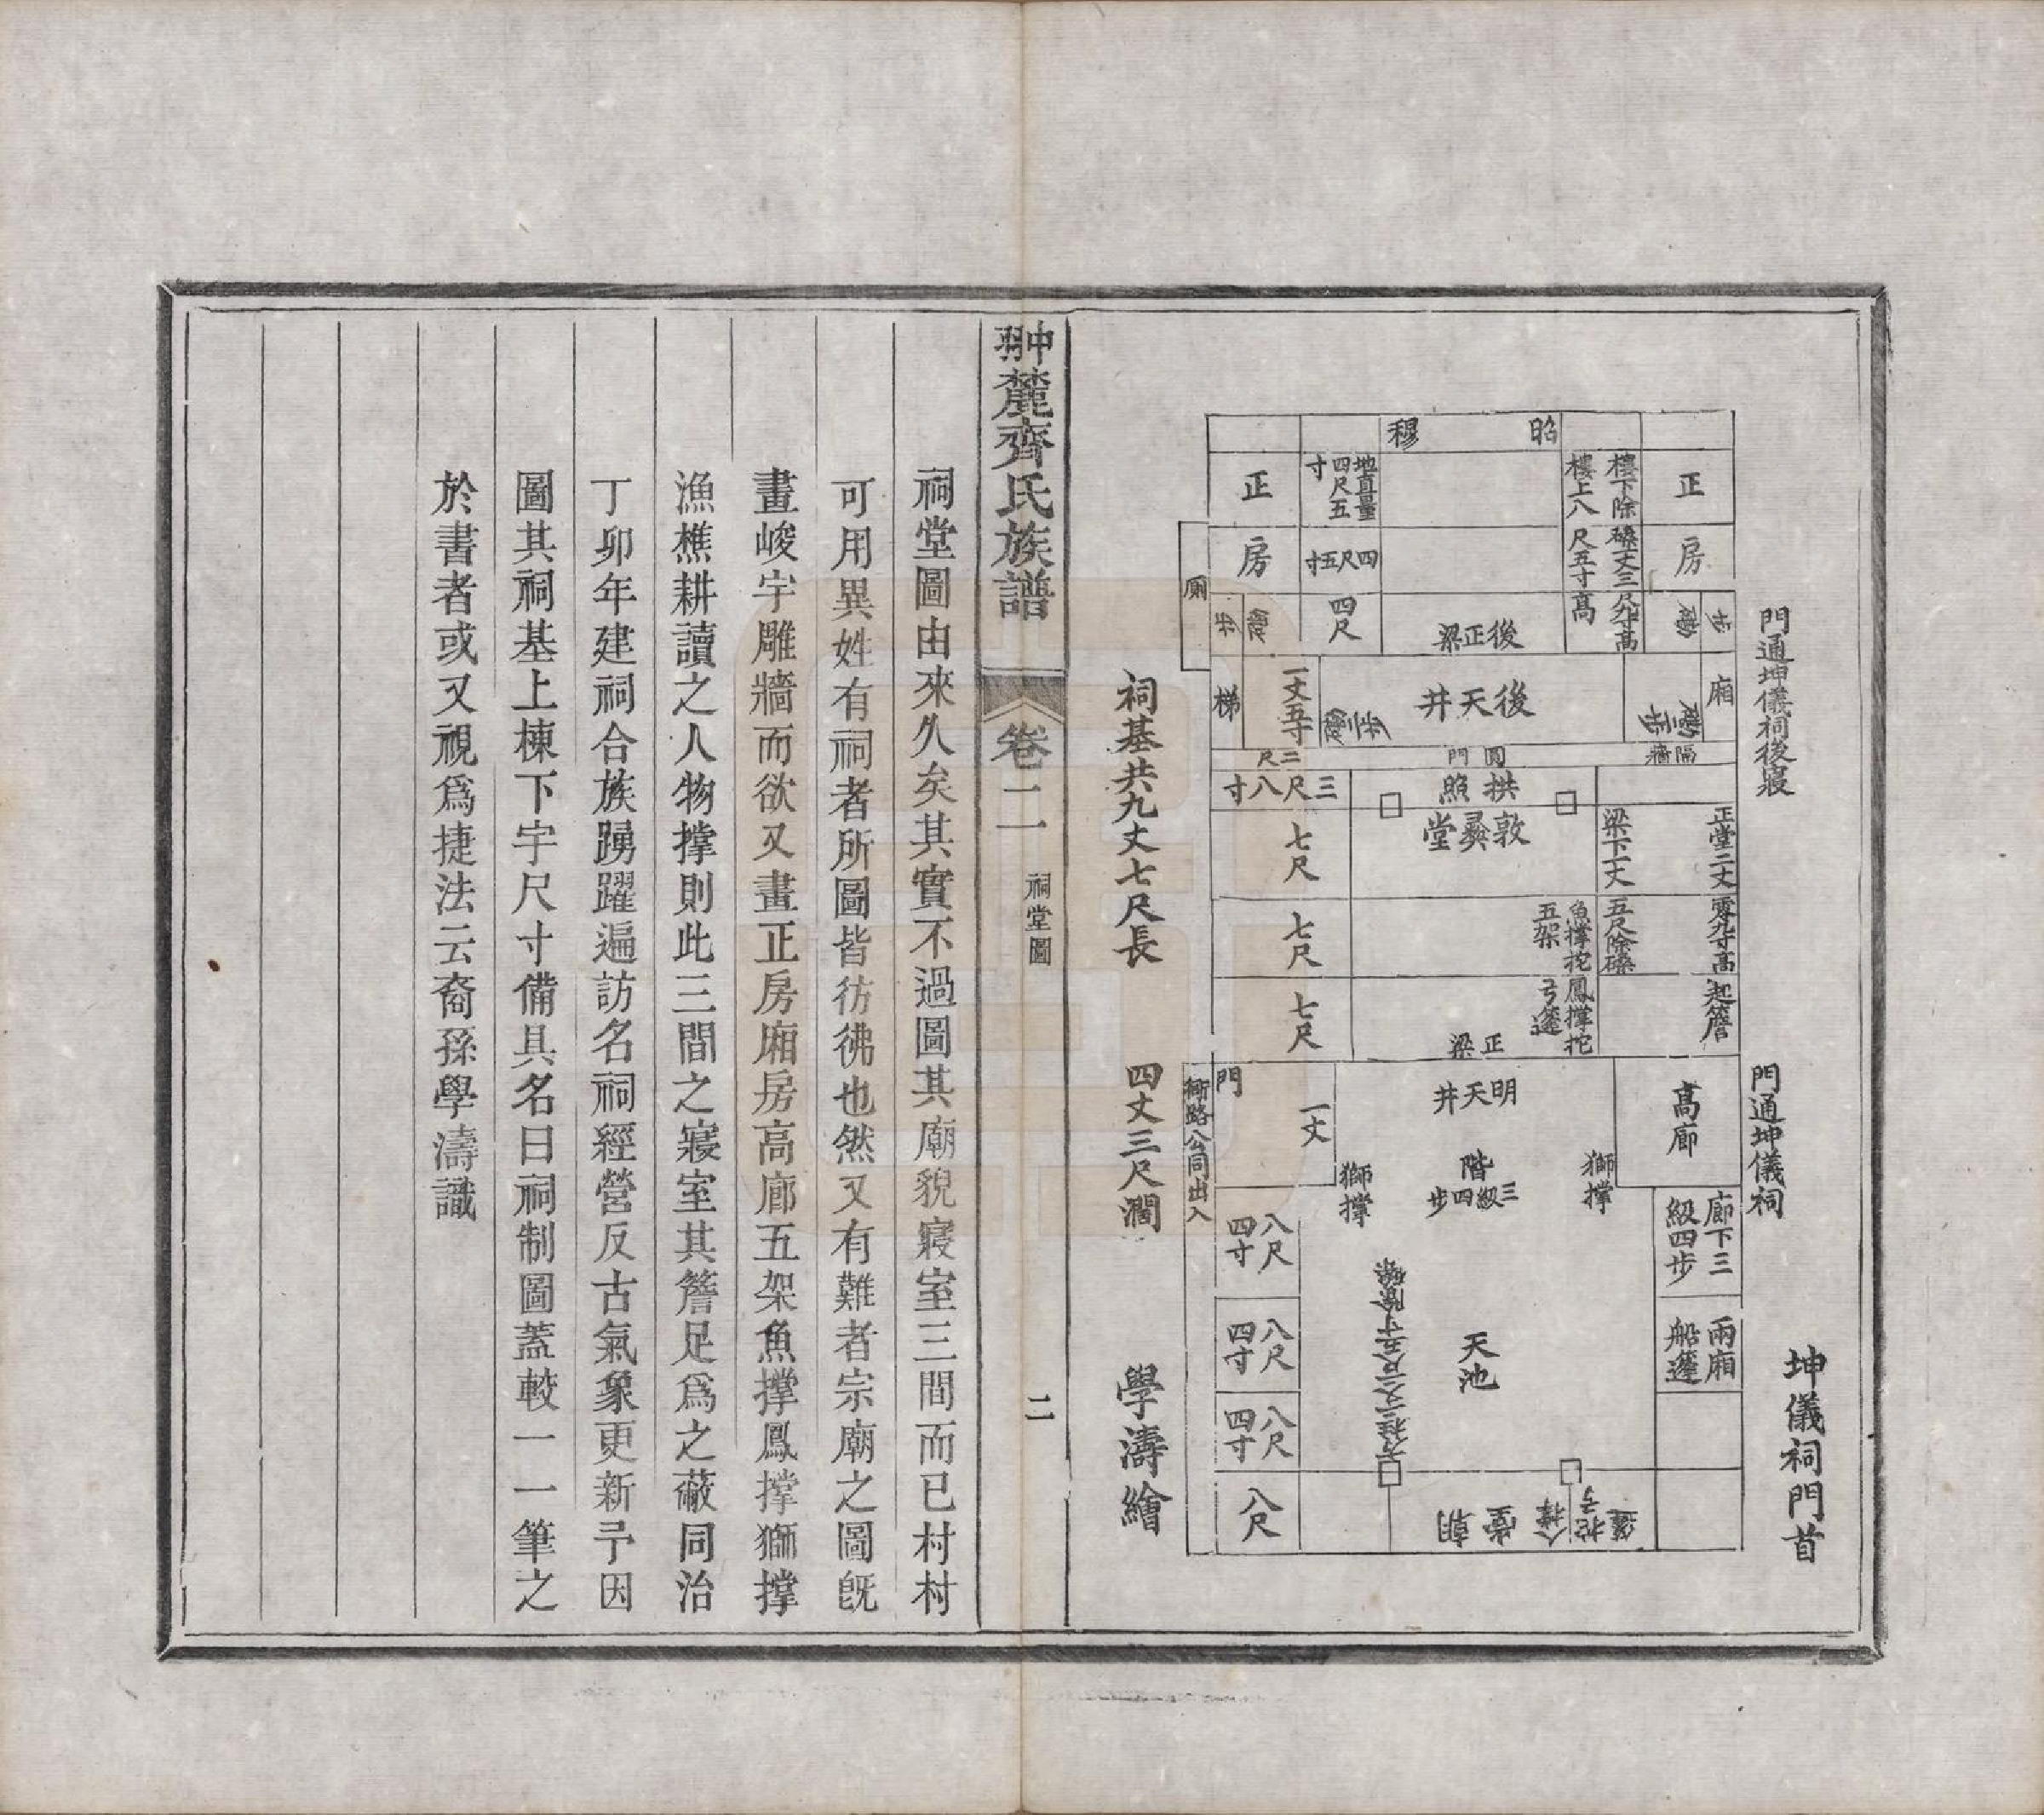 門通坤儀祠後寢
門通坤儀祠
坤儀祠門首
昭
穆
正
房
樓下除磉丈三尺九寸高
樓上八尺五寸高
地直量四尺五寸
四尺五寸
四尺
後正梁
正
房
廁
廂
後天井
一丈五寸
梯
隔牆
圓門
三尺
拱照
三尺八寸
敦彝堂
正堂二丈零九寸高起簷
梁下一丈五尺除磉
魚撑挖五架
鳳撑挖弓篷
七尺
七尺
七尺
正梁
高廊
明天井
一丈
門
衕路公同出入
階三級四步
獅撑
獅撑
廊下三級四步
兩廂船篷
天池
八尺四寸
八尺四寸
八尺四寸
八尺
朝堂
祠基共九丈七尺長
四丈三尺濶
學濤繪
翀麓齊氏族譜
卷二
祠堂圖
二
祠堂圖由來久矣其實不過圖其廟貌寢室三間而已村村
可用異姓有祠者所圖皆彷彿也然又有難者宗廟之圖旣
畫峻宇雕牆而欲又畫正房廂房高廊五架魚撑鳳撑獅撑
漁樵耕讀之人物撑則此三間之寢室其簷足爲之蔽同治
丁卯年建祠合族踴躍遍訪名祠經營反古氣象更新予因
圖其祠基上棟下宇尺寸備具名曰祠制圖蓋較一一筆之
於書者或又視爲捷法云裔孫學濤識